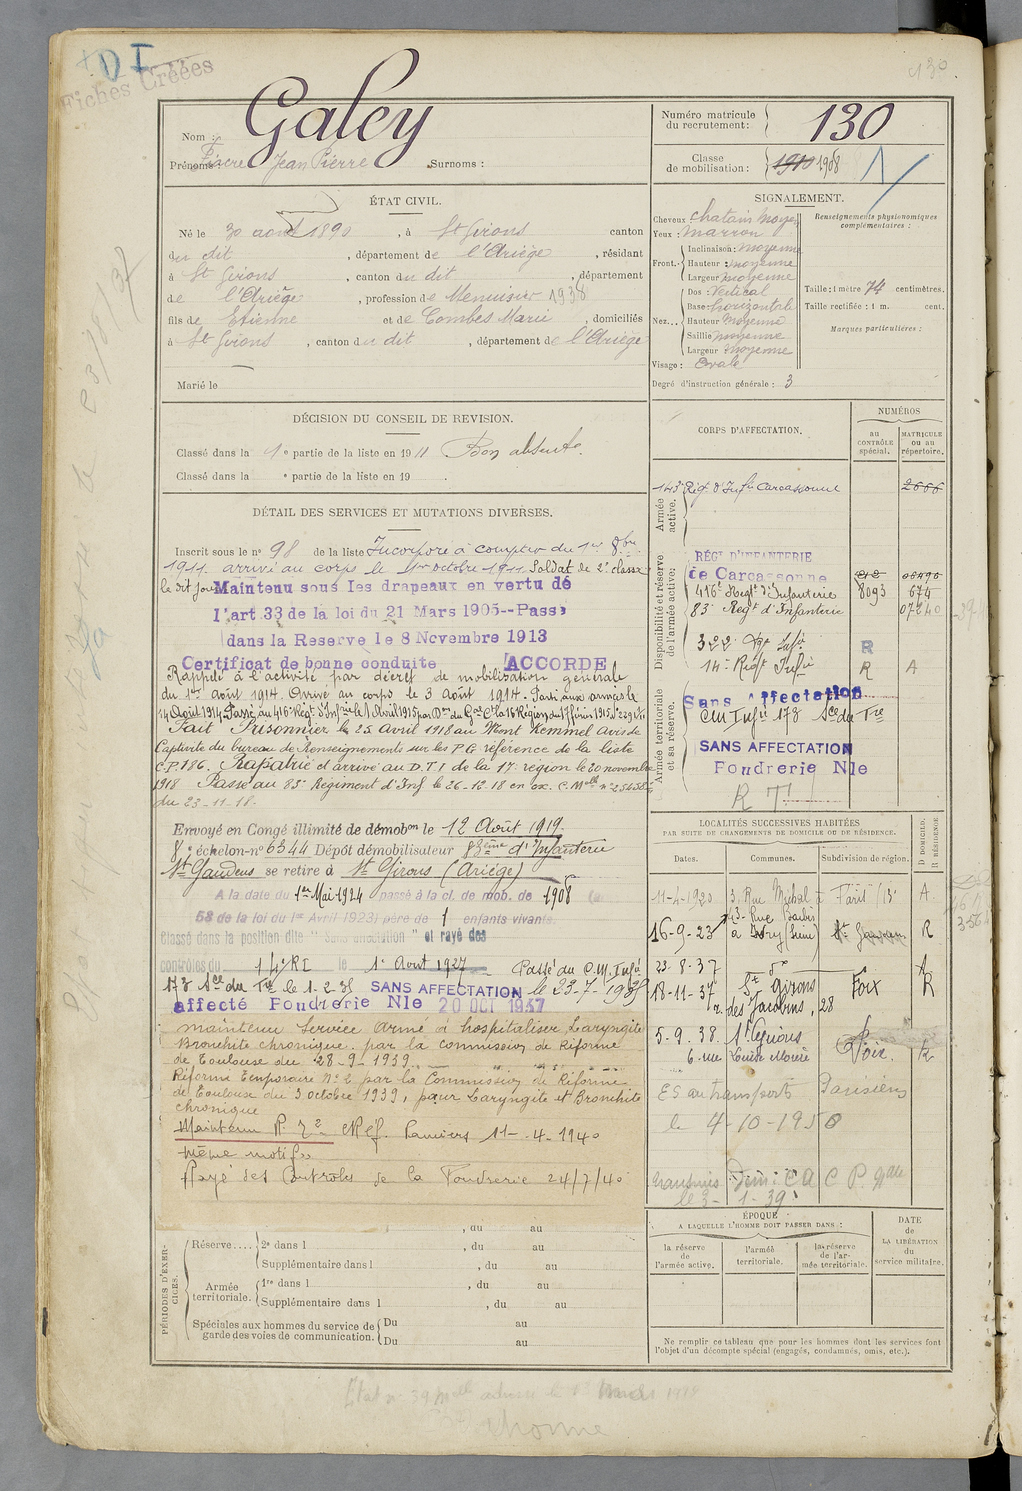 + D I
Fiches Créées
130
Nom : Galey
Prénoms : Fiacre Jean Pierre Surnoms :
Numéro matricule du recrutement : 130
Classe de mobilisation : 1910 1908
ÉTAT CIVIL.
Né le 30 août 1890, à St Girons canton
du dit, département de l'Ariège, résidant
à St Girons, canton du dit, département
de l'Ariège, profession de Menuisier 1938
fils de Etienne et de Combes Marie, domiciliés
à St Girons, canton du dit, département de l'Ariège
Marié le
SIGNALEMENT.
Cheveux chatain moyen
Yeux : marron
Front. Inclinaison : moyenne
Hauteur : moyenne
Largeur moyenne
Nez... Dos : Vertical
Base : horizontale
Hauteur moyenne
Saillie moyenne
Largeur moyenne
Visage : Ovale
Degré d'instruction générale : 3
Renseignements physionomiques complémentaires :
Taille : 1 mètre 74 centimètres.
Taille rectifiée : 1 m. cent.
Marques particulières :
DÉCISION DU CONSEIL DE REVISION.
Classé dans la 1e partie de la liste en 1911 Bon absent.
Classé dans la e partie de la liste en 19
DÉTAIL DES SERVICES ET MUTATIONS DIVERSES.
Inscrit sous le no 98 de la liste Incorporé à compter du 1er 8bre
1911. arrivé au corps le 1er octobre 1911 Soldat de 2e classe
le dit jour Maintenu sous les drapeaux en vertu de
l'art 33 de la loi du 21 Mars 1905--Passé
dans la Reserve le 8 Novembre 1913
Certificat de bonne conduite ACCORDE
Rappelé à l'activité par décret de mobilisation générale
du 1er Août 1914. Arrivé au corps le 3 Août 1914. Parti aux armées le
14 Août 1914 Passé au 416e Régt d'Infie le 1 Avril 1915 par On du Gal Ct la 16 Région du 17 février 1915 No 229
Fait Prisonnier le 25 avril 1918 au Mont Kemmel Avis de
Captivité du bureau de Renseignements sur les P G référence de la liste
C.P. 186. Rapatrié et arrivé au D.T.I de la 17e région le 20 novembre
1918 Passé au 83e Régiment d'Inf le 26-12-18 en ex. C. Mlle
du 23-11-18.
Envoyé en Congé illimité de démobon le 12 Août 1919.
8e échelon-no 6344 Dépôt démobilisateur 83ème d'Infanterie
St Gaudens se retire à St Girons (Ariège)
A la date du 1er Mai 1924 passé à la cl. de mob. de 1908
58 de la loi du 1er Avril 1923) père de 1 enfants vivants.
Classé dans la position dite "Sans affectation" et rayé des
contrôles du 14e RI le 1er Août 1927 Passé au C.M. Infie
173 Sce du Tre le 1.2.35 SANS AFFECTATION le 23-7-1935
affecté Poudrerie Nle 20 OCT 1937
maintenu Service Armé à hospitaliser, Laryngite
Bronchite chronique. par la commission de Réforme
de Toulouse du 28-9-1939
Réformé Temporaire No 2 par la Commission de Réforme
de Toulouse du 3 octobre 1939, pour Laryngite et Bronchite
chronique
Maintenu R. T. 2e CRéf. Pamiers 11-4-1940
même motif
Rayé des Contrôles de la Poudrerie 24/7/40
CORPS D'AFFECTATION.
NUMÉROS
au CONTRÔLE spécial.
MATRICULE ou au répertoire.
Armée active.
143e Régt d'Infie Carcassonne 2666
Disponibilité et réserve de l'armée active.
RÉGt D'INFANTERIE
de Carcassonne 212 06490
416e Régt d'Infanterie 8093 674
83e Régt d'Infanterie 07240
322e Rgt Infie R
14e Régt Infie R A
Armée territoriale et sa réserve.
Sans Affectation
CM Infie 173 Sce du Tre
SANS AFFECTATION
Poudrerie Nle
R T
LOCALITÉS SUCCESSIVES HABITÉES
PAR SUITE DE CHANGEMENTS DE DOMICILE OU DE RÉSIDENCE.
Dates. Communes. Subdivision de région. D DOMICILE. R RÉSIDENCE
11-4-1920 3, Rue Michal à Paris /13e A
16-9-23 43 Rue Barbès à Ivry (Seine) R
23-8-37 do A
18-11-37 St Girons Foix R
r. des Jacobins, 28
5-9.38. St Girons Foix. R
6 rue Louise Moure
ES au Transports Parisiens
le 4-10-1950
le 3-1-39
ÉPOQUE
A LAQUELLE L'HOMME DOIT PASSER DANS :
la réserve de l'armée active.
l'armée territoriale.
la réserve de l'armée territoriale.
DATE de LA LIBÉRATION du service militaire.
Ne remplir ce tableau que pour les hommes dont les services font
l'objet d'un décompte spécial (engagés, condamnés, omis, etc.).
PÉRIODES D'EXERCICES.
, du au
Réserve.... 2e dans l , du au
Supplémentaire dans l , du au
Armée territoriale. 1re dans l , du au
Supplémentaire dans l , du au
Spéciales aux hommes du service de garde des voies de communication. Du au
Du au